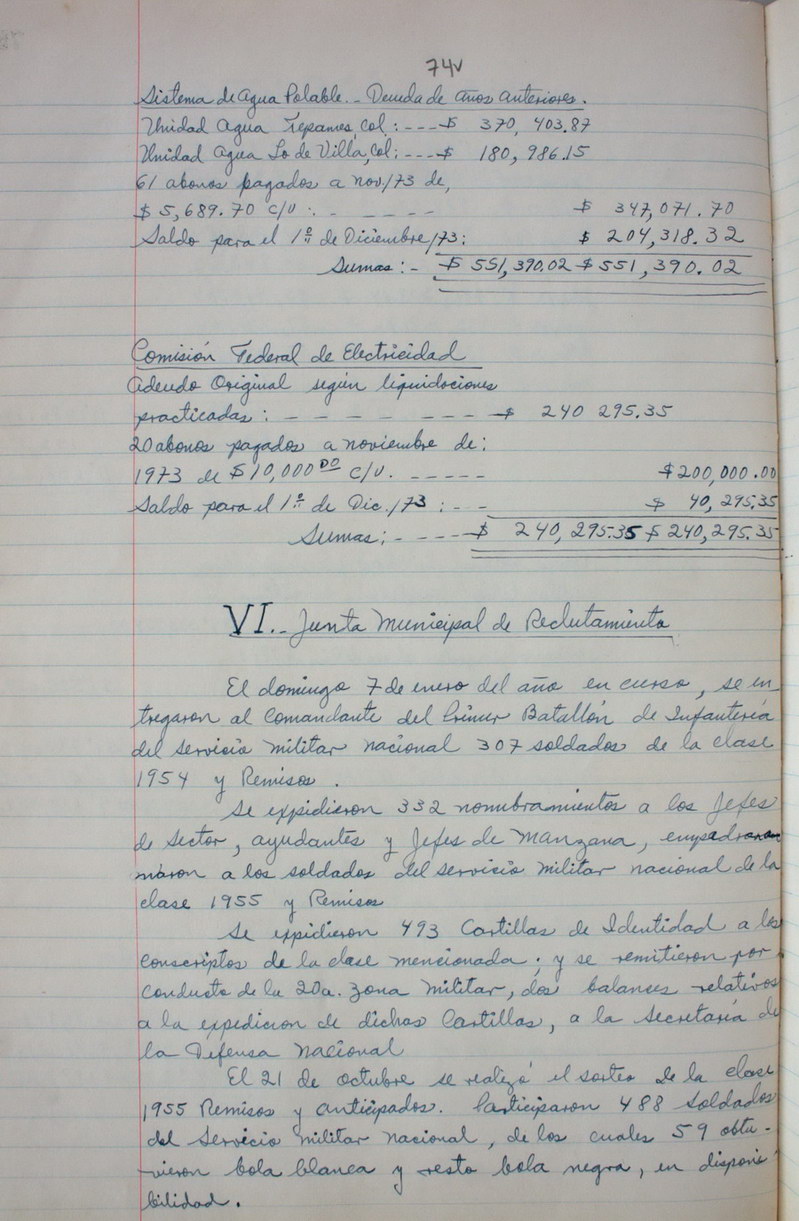 74v
Sistema de Agua Potable.- Deuda de años anteriores.
Unidad Agua Tepames, Col: - - - $ 370, 403.87
Unidad Agua Lo de Villa, Col: - - - $ 180, 986.15
61 abonos pagados a nov/73 de,
$ 5,689.70 c/u :. - - - - $ 347,071.70
Saldo para el 1º de Diciembre/73: $ 204,318.32
Sumas:- $ 551,390.02 $ 551,390.02
Comisión Federal de Electricidad
Adeudo Original según liquidaciones
practicadas: - - - - - - - $ 240 295.35
20 abonos pagados a noviembre de:
1973 de $10,000 00 c/u. - - - - - $200,000.00
Saldo para el 1º de Dic./73 : - - $ 40,295.35
Sumas; - - - - $ 240,295.35 $ 240,295.35
VI.- Junta Municipal de Reclutamiento
El domingo 7 de enero del año en curso, se en
tregaron al Comandante del Primer Batallón de Infantería
del servicio militar nacional 307 soldados de la clase
1954 y Remisos.
Se expidieron 332 nombramientos a los Jefes
de Sector, ayudantes y Jefes de Manzana,
maron a los soldados del servicio militar nacional de la
clase 1955 y Remisos
Se expidieron 493 Cartillas de Identidad a los
conscriptos de la clase mencionada; y se remitieron por
conducto de la 20a. Zona Militar, dos balances relativos
a la expedicion de dichas Cartillas, a la Secretaría de
la Defensa Nacional
El 21 de octubre se realizó el sorteo de la clase
1955 Remisos y anticipados. Participaron 488 soldados
del Servicio Militar Nacional, de los cuales 59 obtu-
vieron bola blanca y resto bola negra, en disponi
bilidad.